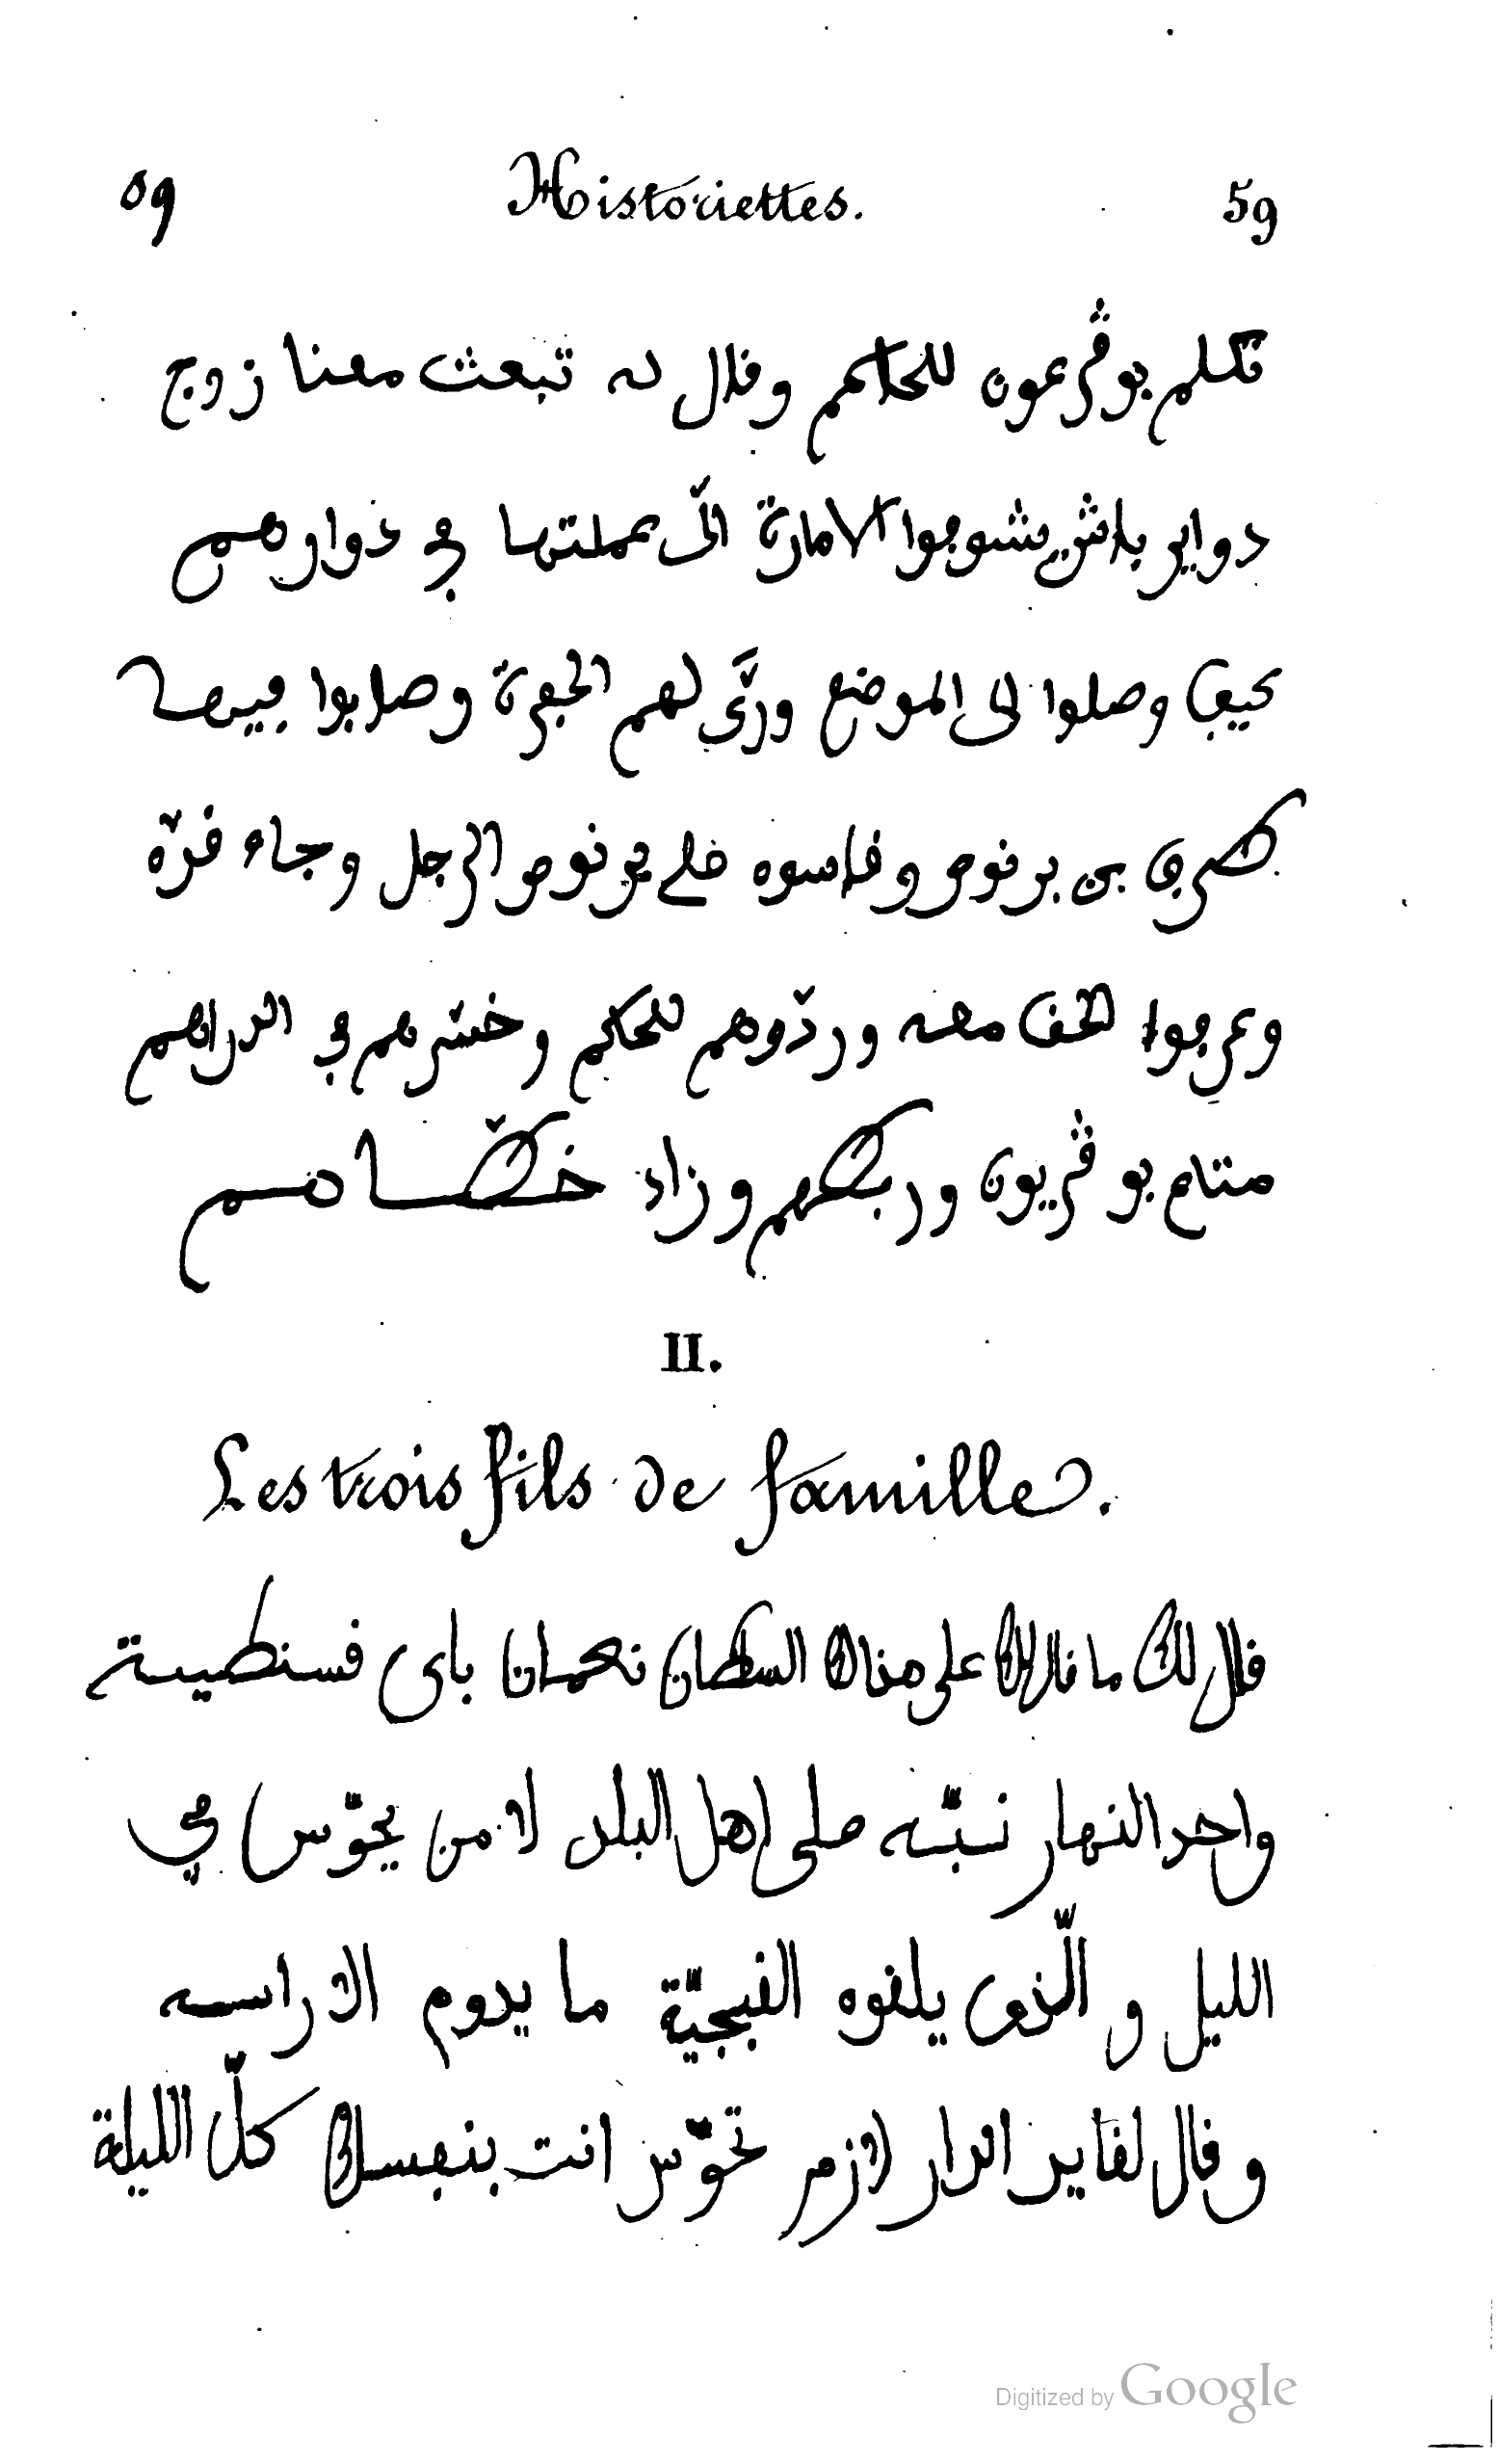 59 Historiettes. 59
تكلم بوڨرعون للحاكم وقال له تبعث معنا زوج
دواير باش يشوفوا الامارة الّى عملتها في دوارهم
كيف وصلوا لى الموضع ورَّى لهم الجفرة وصابوا فيها
طرف بن برنوص وقاسوه على برنوص الرجل وجاء قدّه
وعرفوا الحق معه وردّوهم للحاكم وخسّرهم في الدراهم
متاع بوڨريون وربطهم وزاد خطّاهم
II.
Les trois fils de famille.
قال لك ما قال لك على هذاك السلطان نعمان باى قسنطينة
واحد النهار نبّه على اهل البلد لا من يحوّس في
الليل و الّذى يلقوه القبجيّة ما يدوم الا راسه
و قال لقايد الدار لازم تحوّس انت بنفسك كلّ الليلة
Digitized by Google